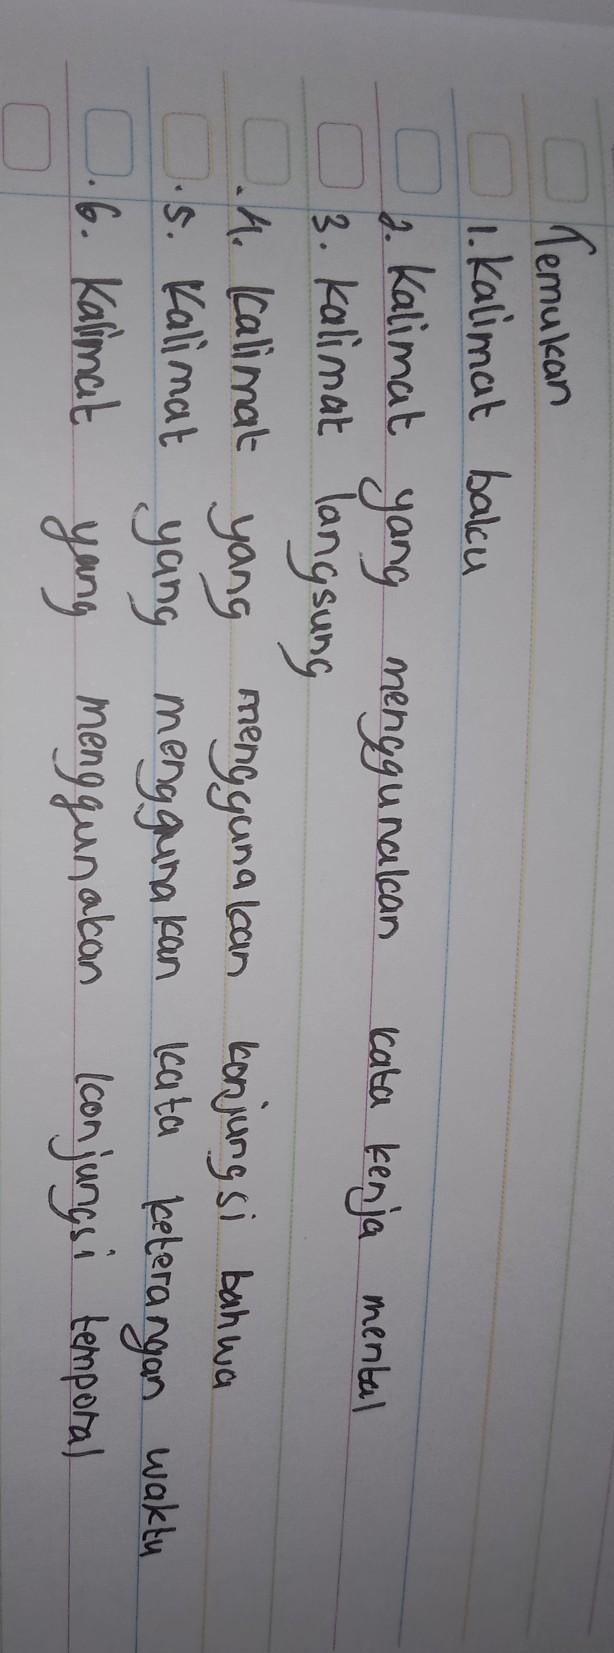 Temukan
1. Kalimat baku
2. Kalimat yang menggunakan kata kerja mental
3. Kalimat langsung
4. Kalimat yang menggunakan konjungsi bahwa
5. Kalimat yang menggunakan kata keterangan waktu
6. Kalimat yang menggunakan konjungsi temporal